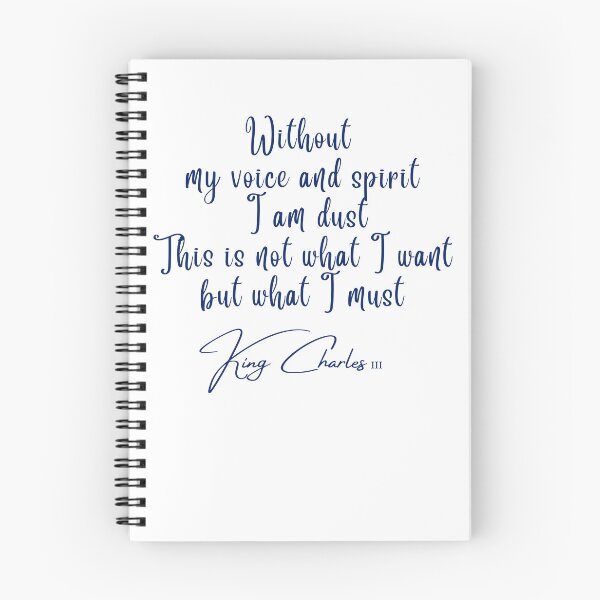 Without
my voice and spirit
I am dust
This is not what I want
but what I must
King Charles III